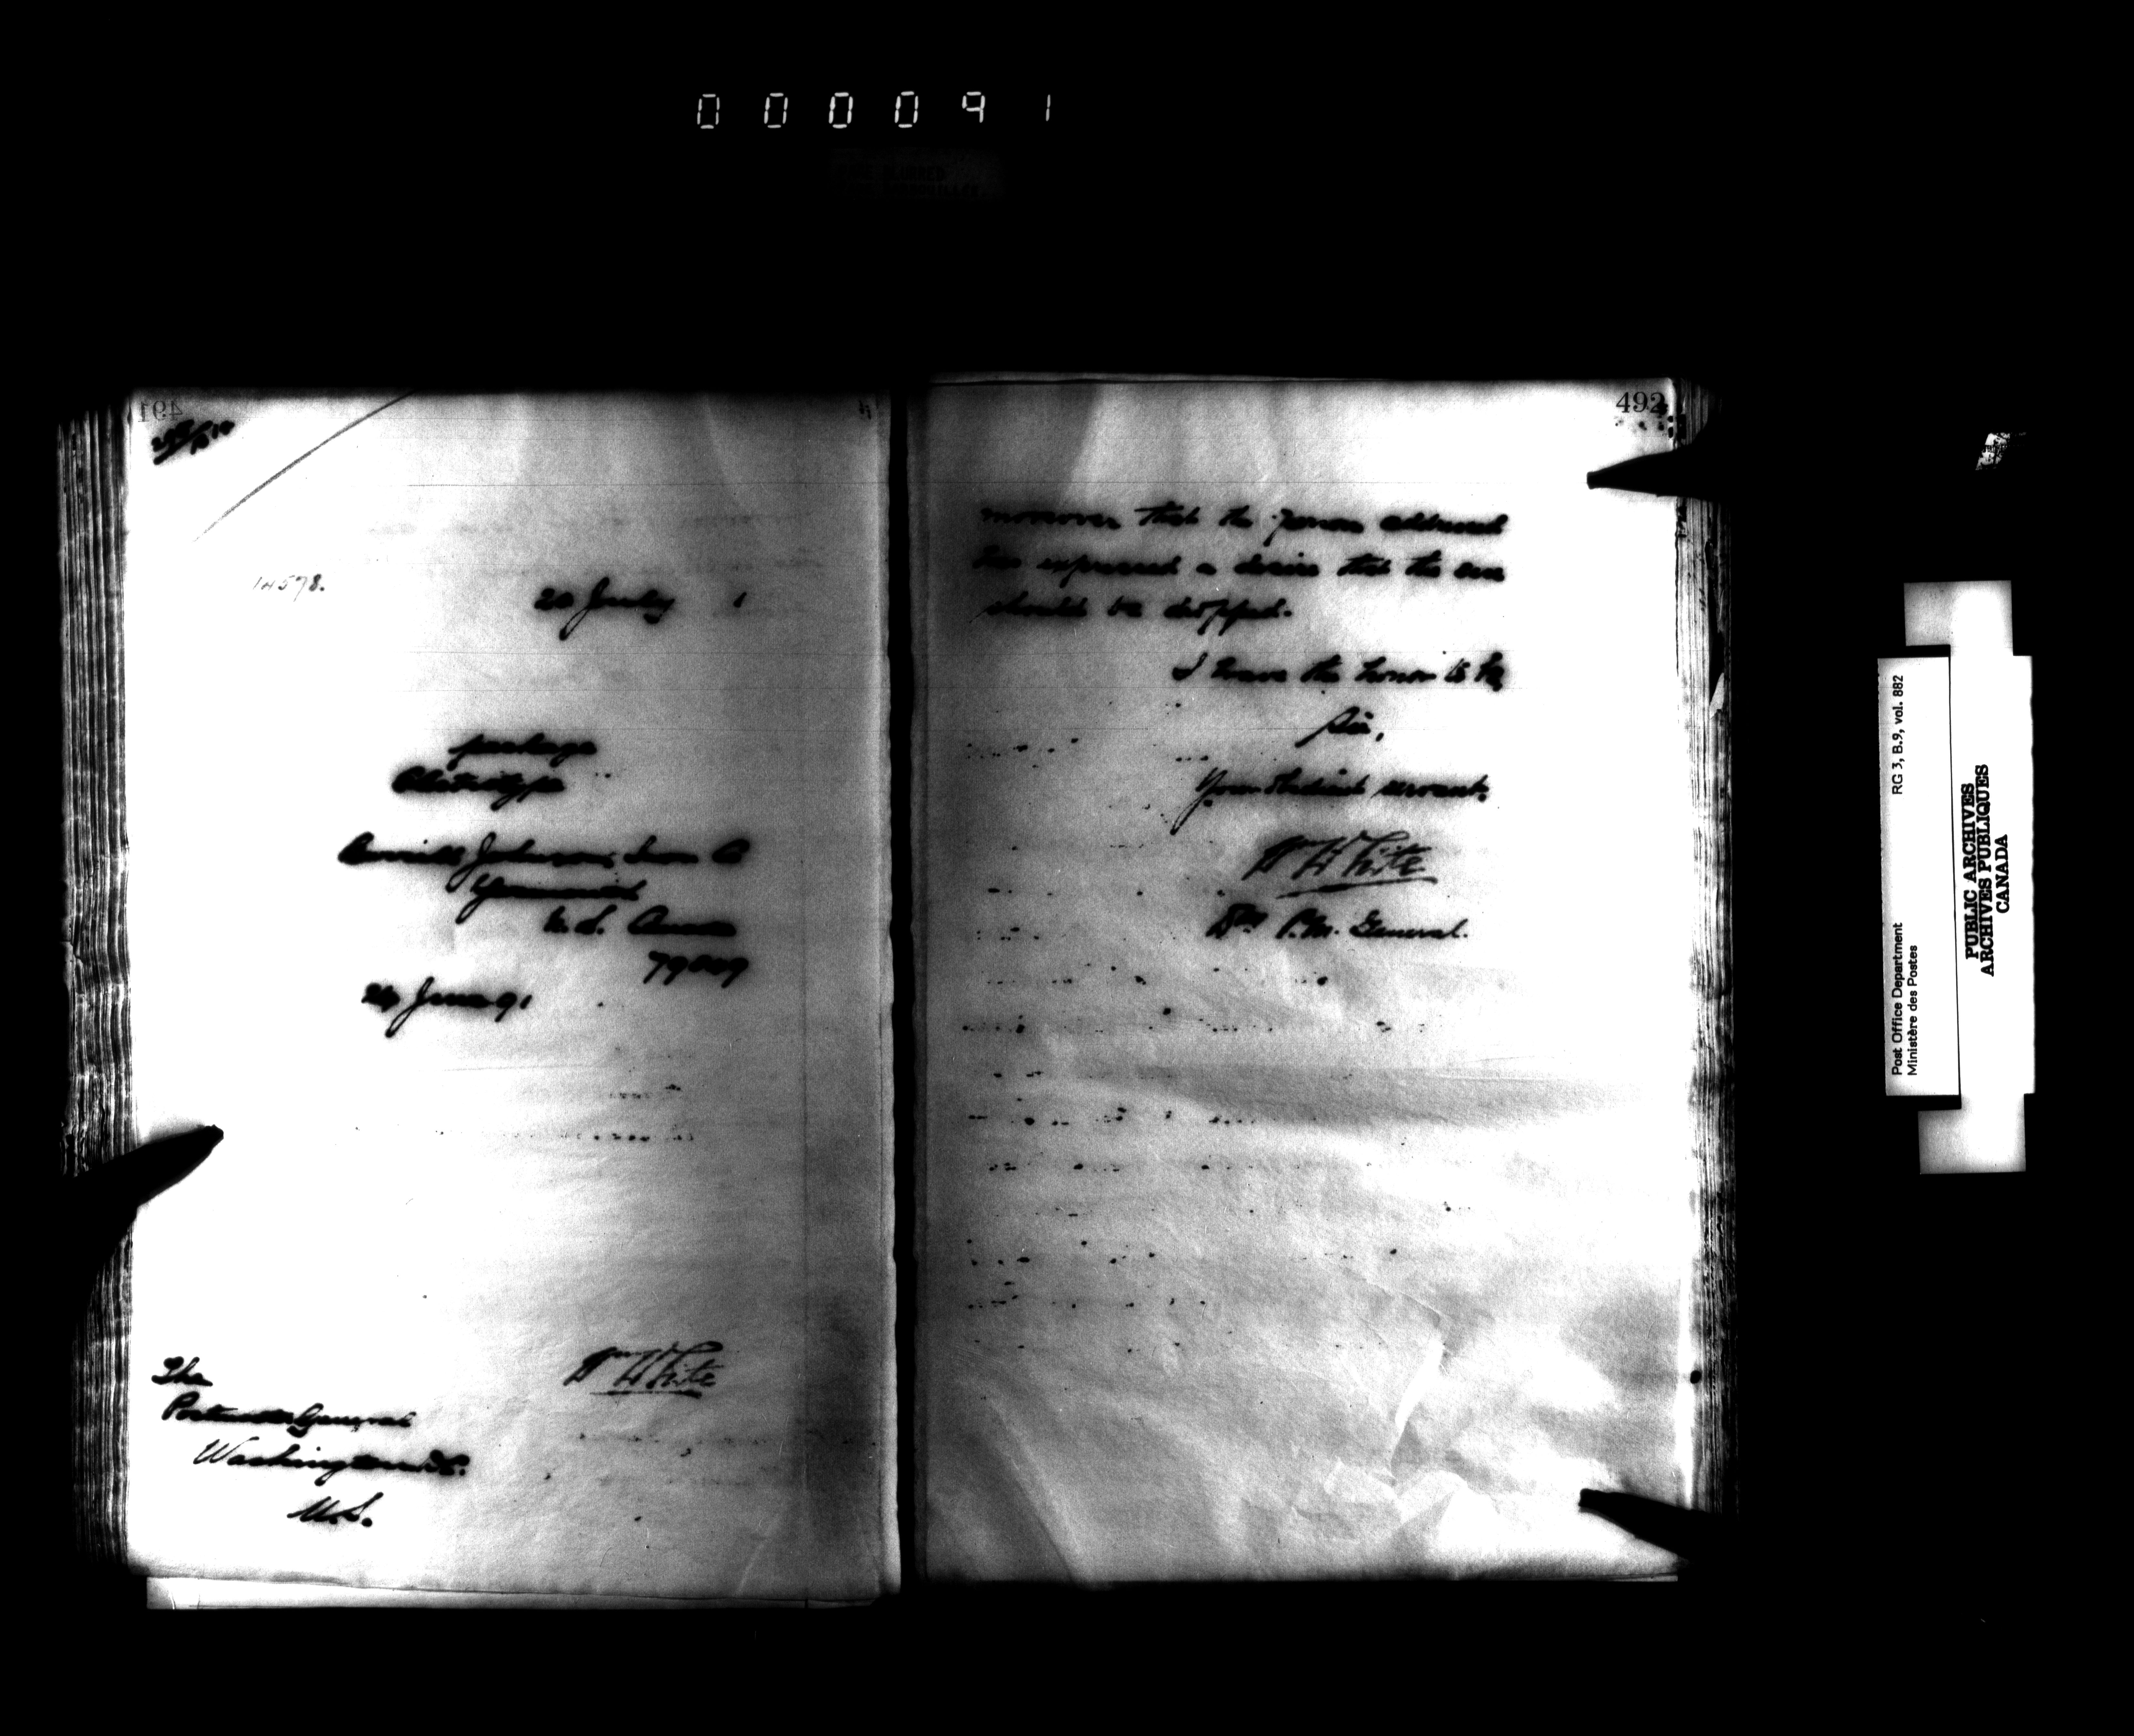 000091
491
14578.
20 July 1
package
Electrotype
Burrill Johnson Iron C
Yarmouth
N. S.
24 June 91
The
Postmaster General
Washington D.C.
U.S.
Wm White
492
moreover that the person addressed
has expressed a desire that the case
should be dropped.
I have the honor to be,
Sir,
Your obedient servant.
Wm White
Dy. P.M. General.
Post Office Department
Ministère des Postes
RG 3, B.9, vol. 882
PUBLIC ARCHIVES
ARCHIVES PUBLIQUES
CANADA